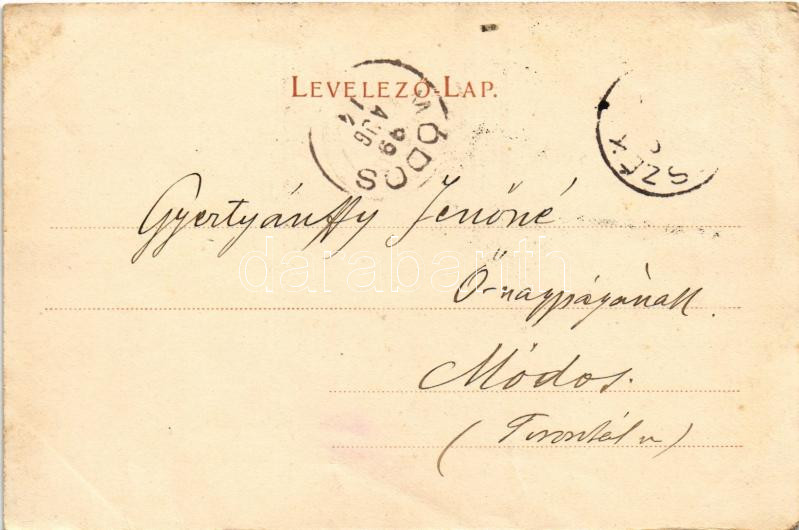 LEVELEZŐ-LAP.
MÓDOS
99
AUG
14
SZÉ
Gyertyánffy Jenőné
Ő-nagyságának
Módos.
(Torontál m)
darabanth